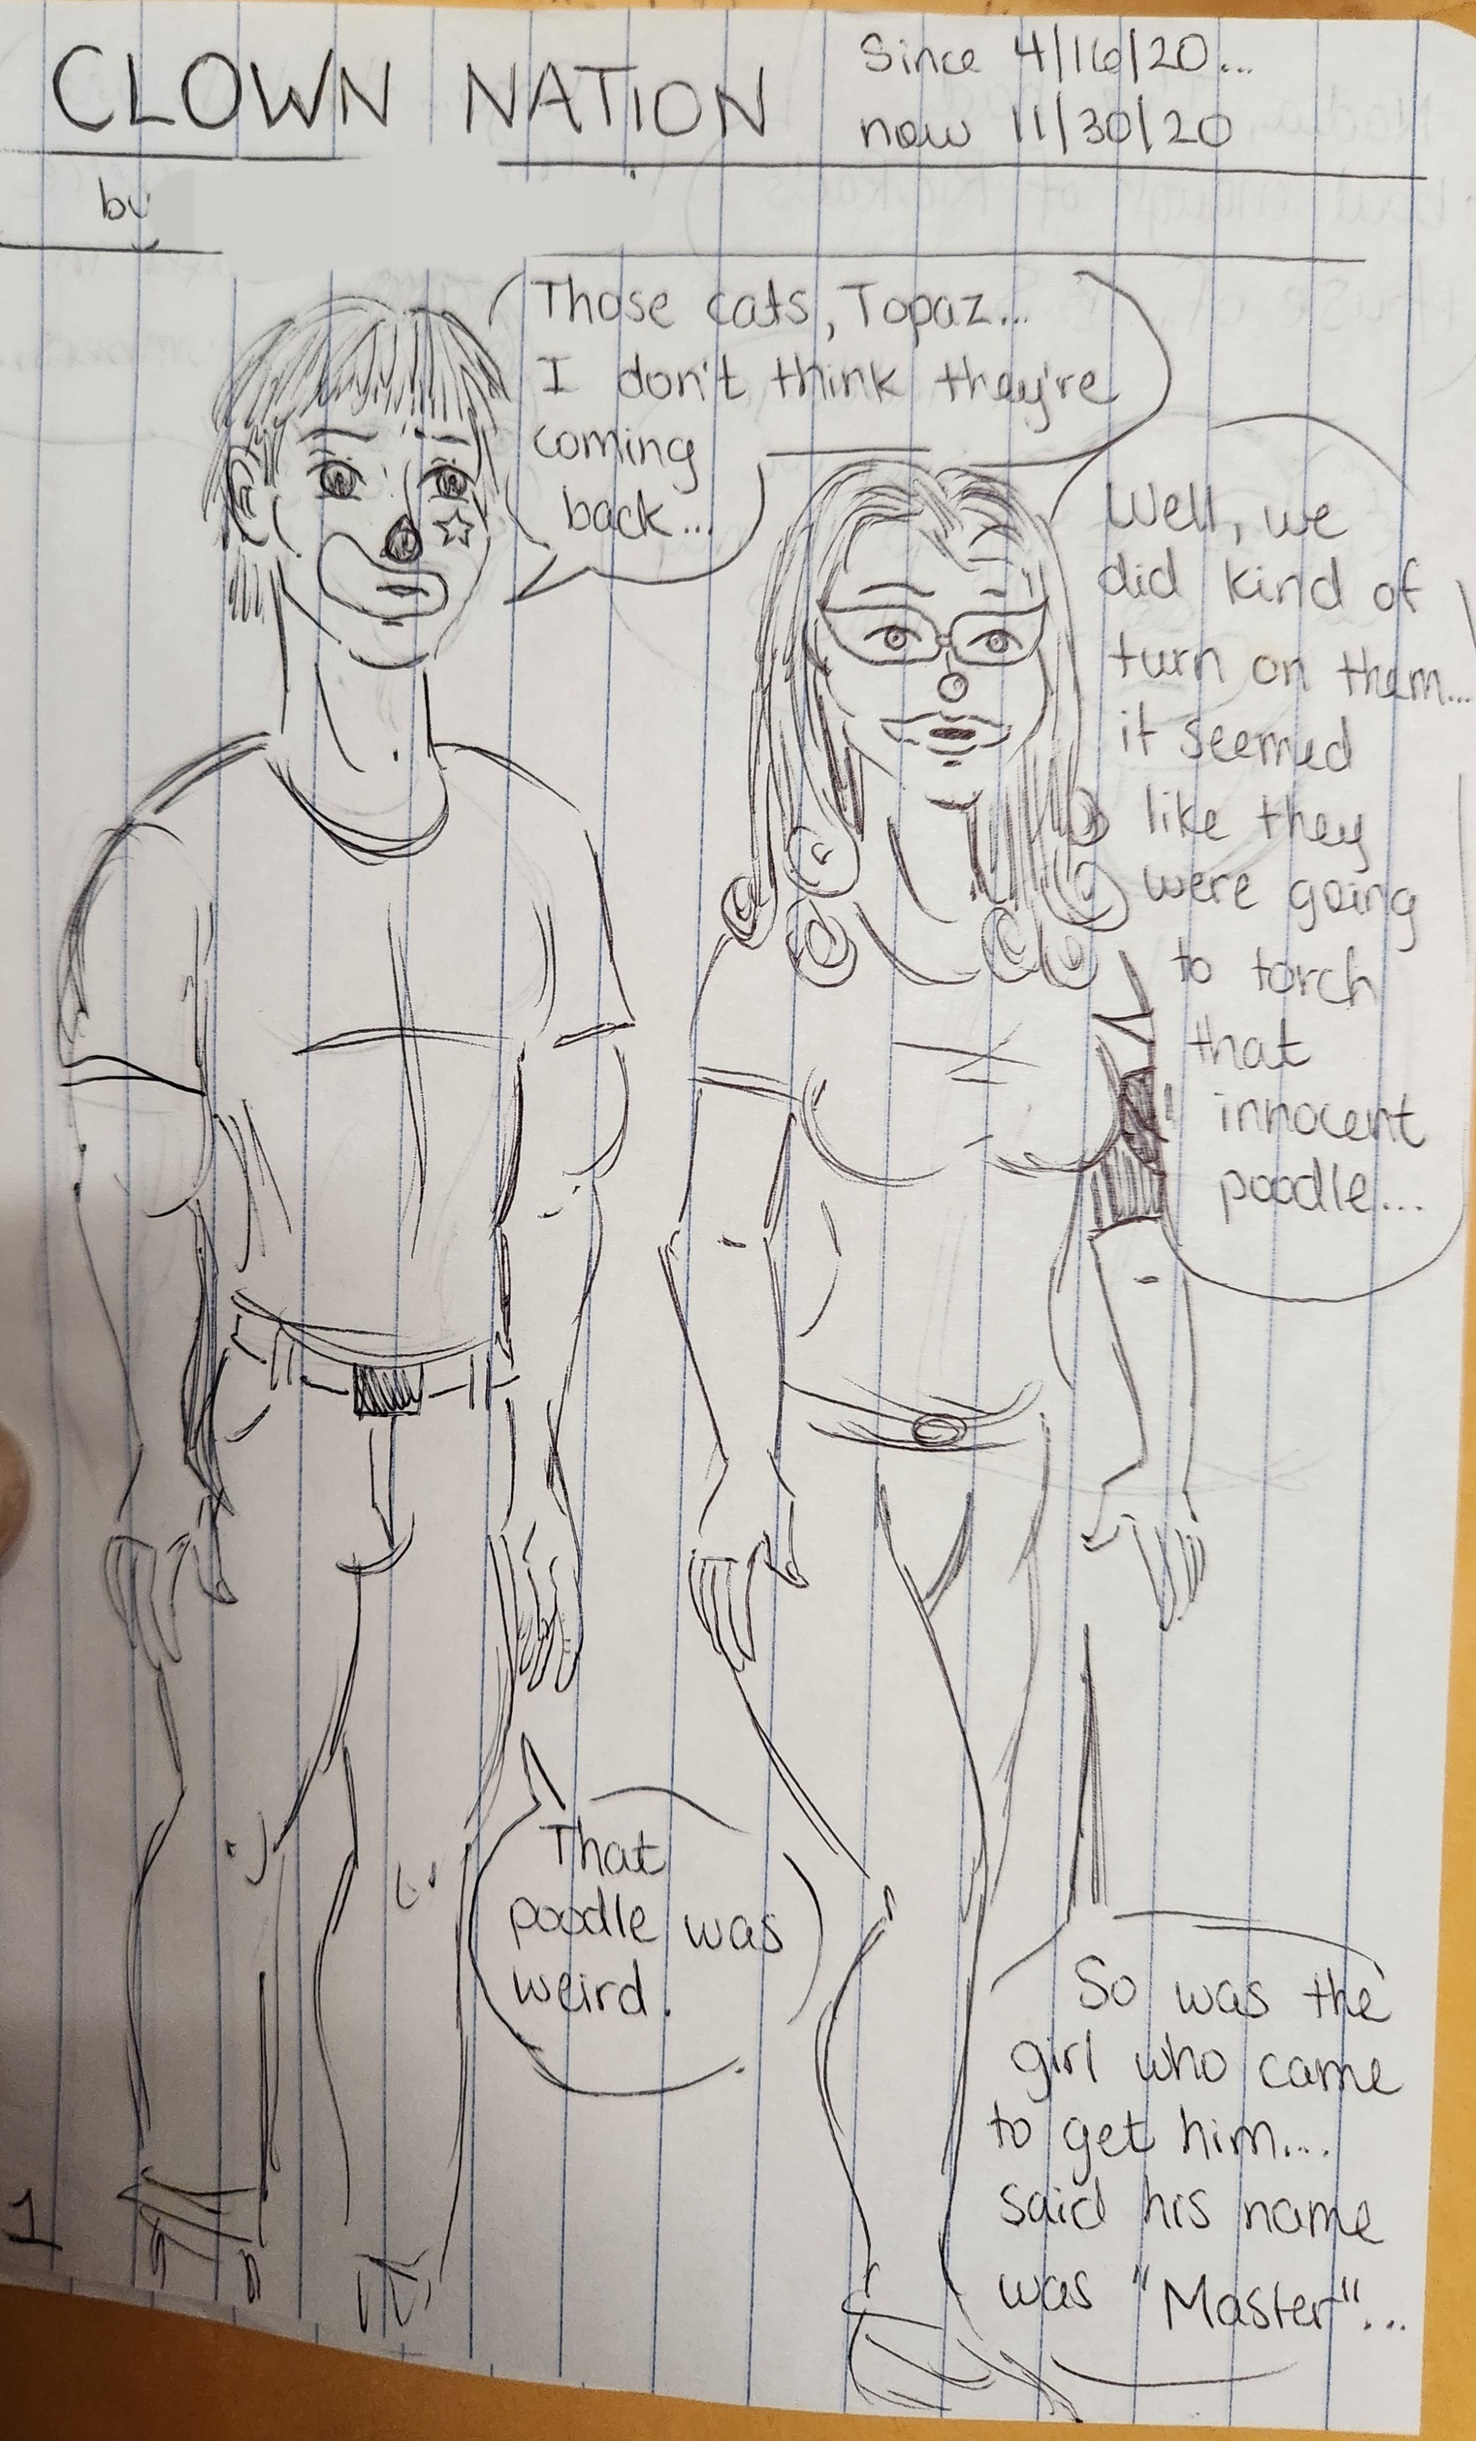 CLOWN NATION
Since 4/16/20...
now 11/30/20
by
Those cats, Topaz...
I don't think they're
coming
back...
Well, we
did kind of
turn on them...
it seemed
like they
were going
to torch
that
innocent
poodle...
That
poodle was
weird.
So was the
girl who came
to get him....
said his name
was "Master"...
1